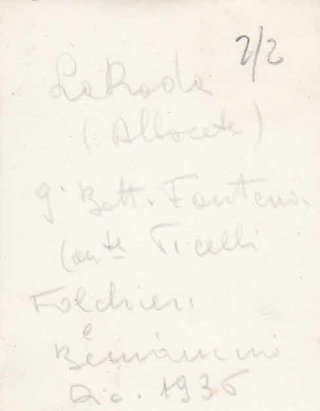 2/2
La Roda
(Albacete)
9° Batt. Fanteria
Con te Ticelli
Folchieri
e
Beniamino
Dic. 1936